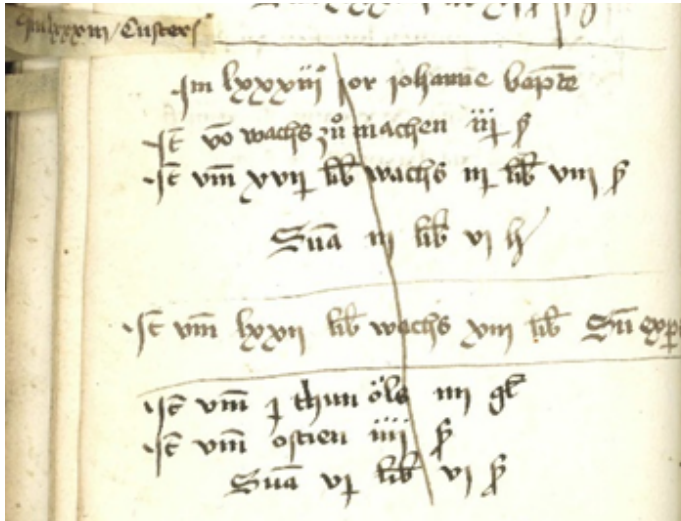 Im lxxxiii / Custers
Im lxxxiii jor johanne bapte
Jt vo wachs zů machen iij ß
Jt vm xvij lib wachs iij lib viii ß
Sua iii lib vi h
Jt vm lxxii lib wachs xiii lib Su exp
Jt vm j thun öls iiii gl
Jt vm ostien iiij ß
Sua vj lib vi ß